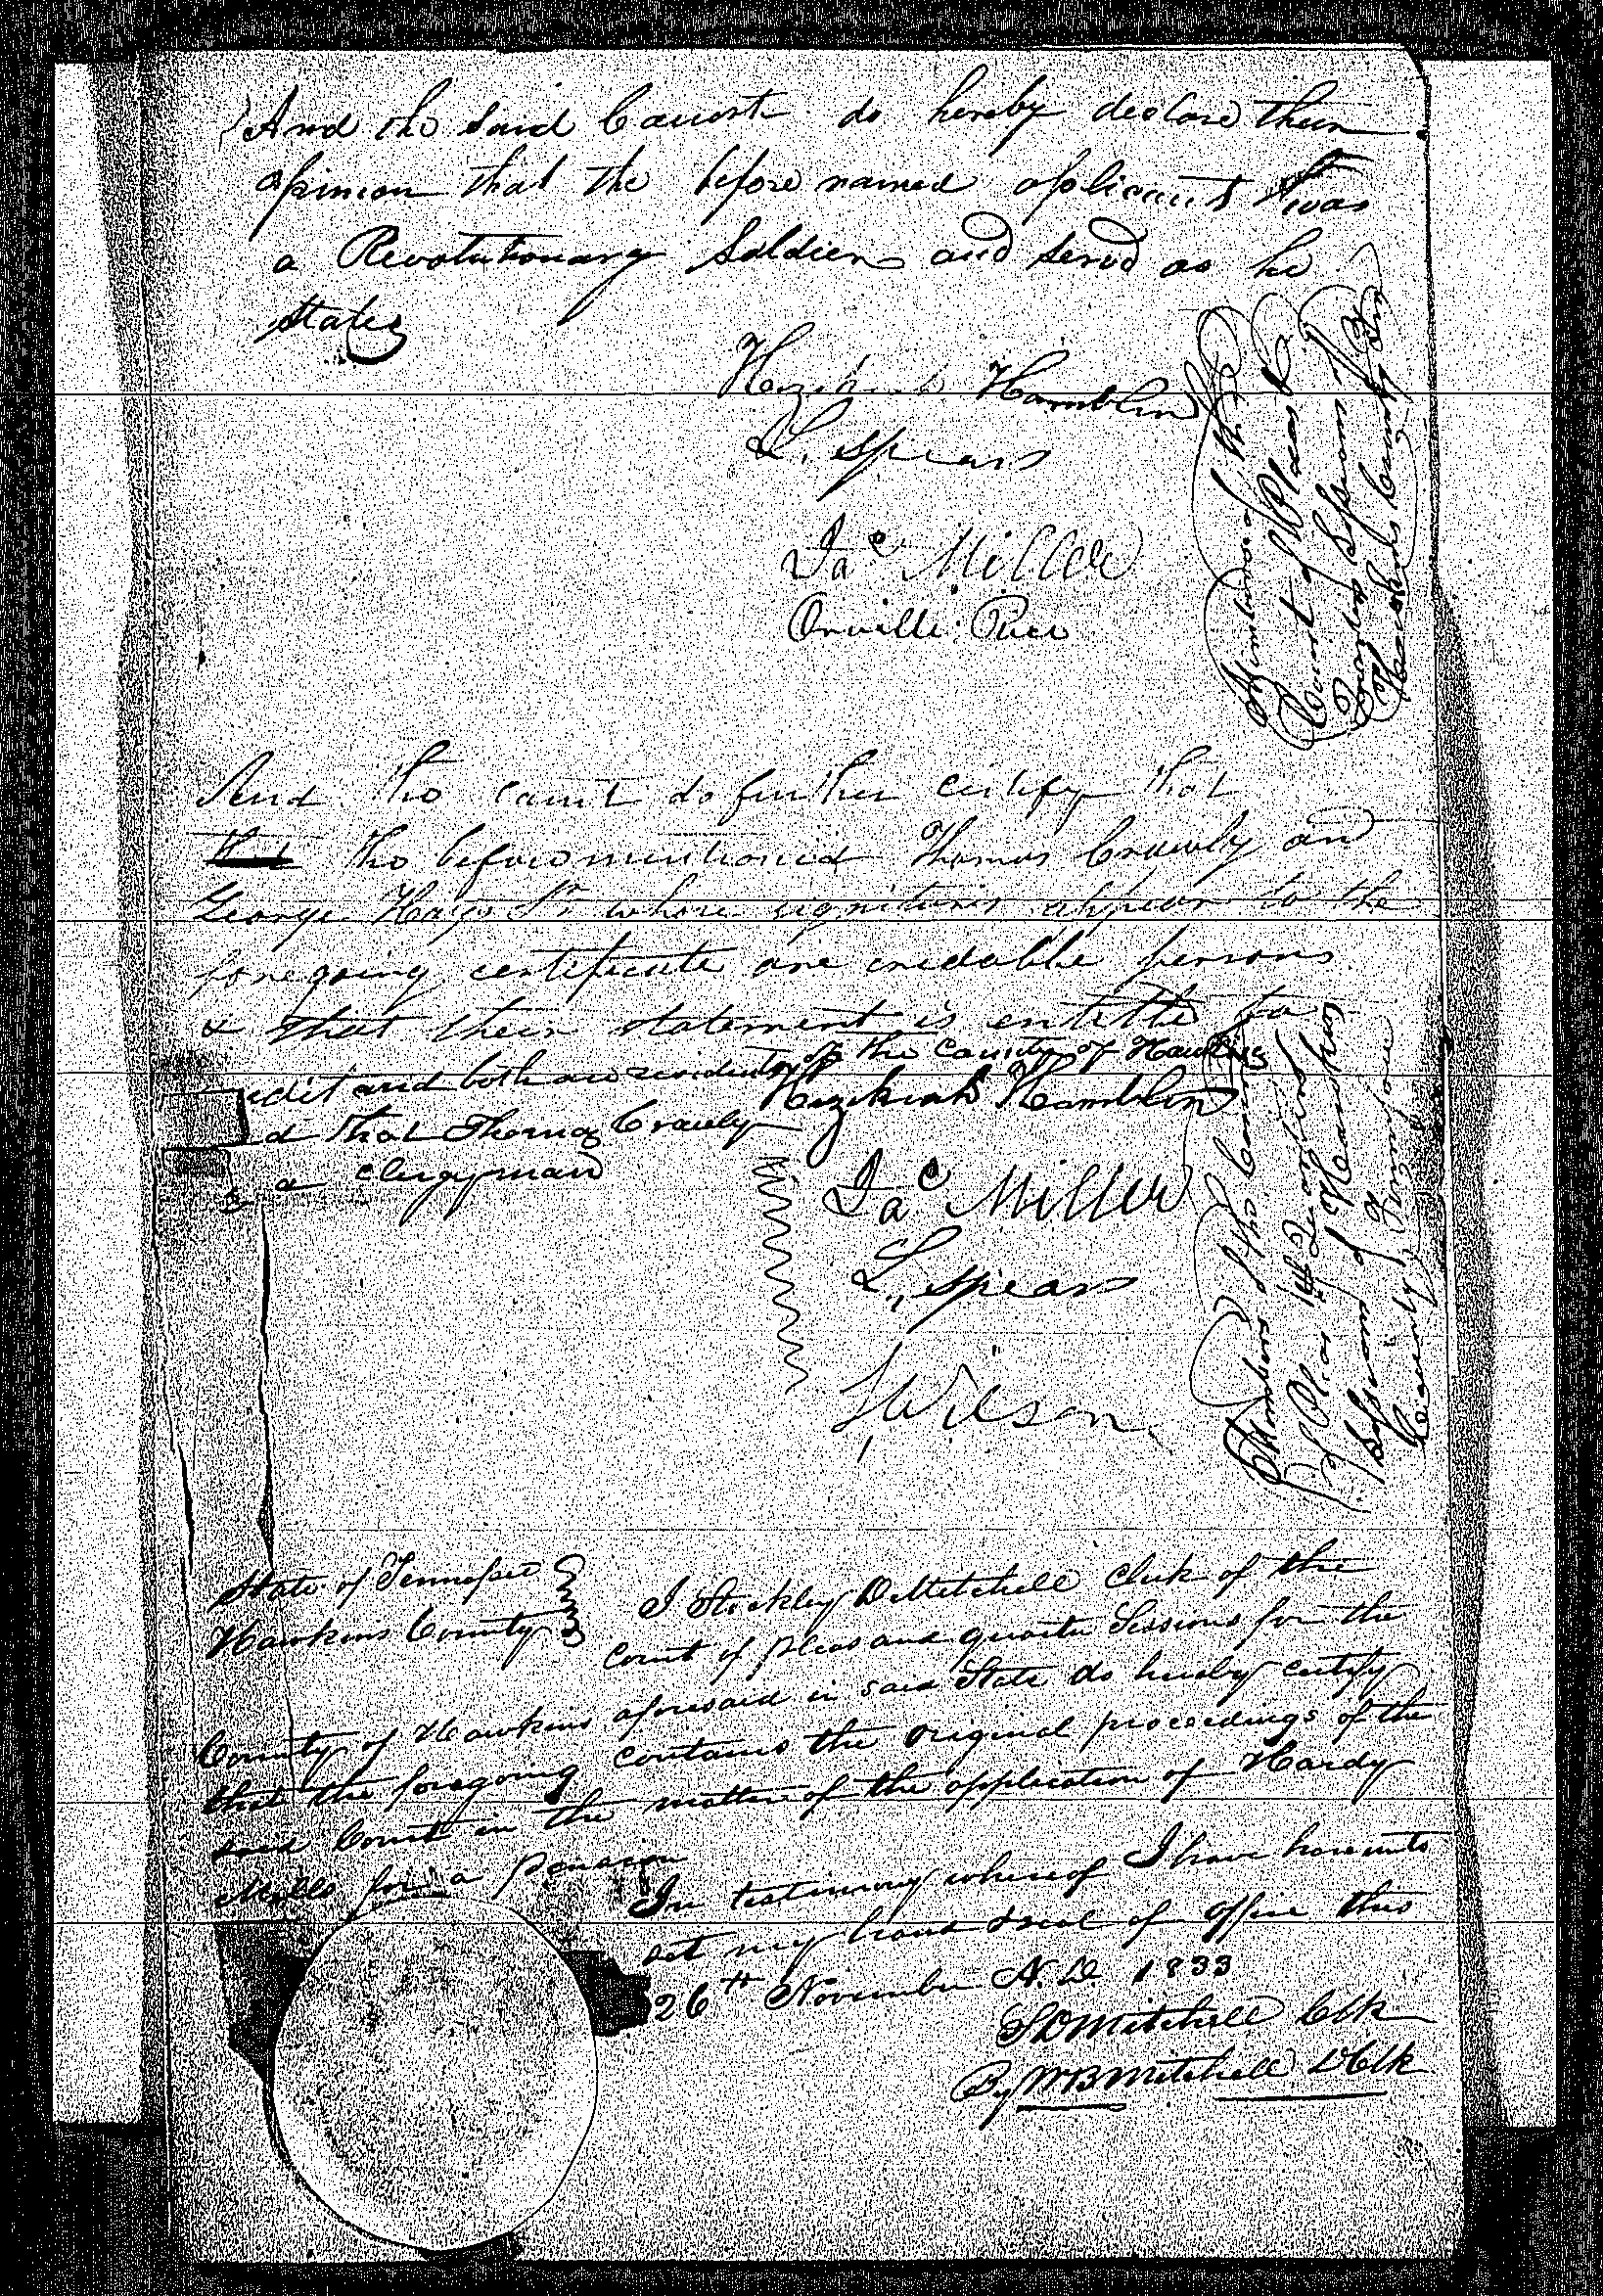 And the Said Court do hereby declare their
opinion that the before named applicant was
a Revolutionary Soldier and served as he
states
Hezekiah Hamblin
L. Spears
Jac Miller
Orville Rice
Members of the
Court of Pleas &
Quarter Sessions for
Hawkins County Tn
And the Court do further certify that
that the beforementioned Thomas Crawly and
George Hays Sr whose signitures appear to the
foregoing certificate are credable persons
& that their statement is entitle to
edit and both are residents of the County of Hawkins
d that Thomas Crawly
is a clergyman
Hezekiah Hamblin
Jac Miller
L. Spears
J Wilson
Members of the Court
of Pleas & Quarter
Sessions of Hawkins
County Tennessee
State of Tennessee
Hawkins County
I Stokley D Mitchell Clerk of the
Court of pleas and quarter Sessions for the
County of Hawkins aforesaid in said State do hereby certify
that the foregoing contains the original proceedings of the
said Court in the matter of the application of Hardy
Mills for a pension
In testimony whereof I have hereunto
set my hand & seal of office this
26th November A.D 1833
SDMitchell Clk
By WBMitchell DClk